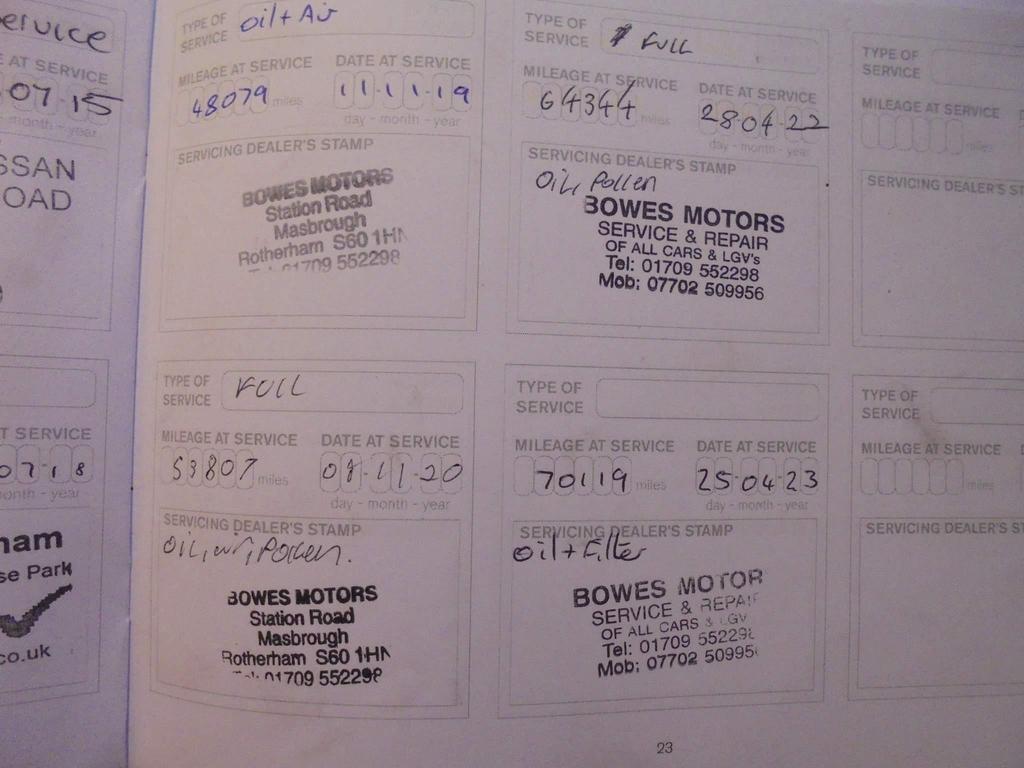 ervice
AT SERVICE
07 15
month - year
SSAN
OAD
T SERVICE
07 18
onth - year
ham
se Park
co.uk
TYPE OF
SERVICE
Oil + Air
MILEAGE AT SERVICE
DATE AT SERVICE
48079 miles
11-11-19
day - month - year
SERVICING DEALER'S STAMP
BOWES MOTORS
Station Road
Masbrough
Rotherham S60 1HN
01709 552298
TYPE OF
SERVICE
FULL
MILEAGE AT SERVICE
DATE AT SERVICE
53807 miles
08-11-20
day - month - year
SERVICING DEALER'S STAMP
Oil, Pollen.
BOWES MOTORS
Station Road
Masbrough
Rotherham S60 1HN
01709 552298
TYPE OF
SERVICE
FULL
MILEAGE AT SERVICE
DATE AT SERVICE
64344 miles
28-04-22
day - month - year
SERVICING DEALER'S STAMP
Oil, Pollen
BOWES MOTORS
SERVICE & REPAIR
OF ALL CARS & LGV's
Tel: 01709 552298
Mob: 07702 509956
TYPE OF
SERVICE
MILEAGE AT SERVICE
DATE AT SERVICE
70119 miles
25-04-23
day - month - year
SERVICING DEALER'S STAMP
Oil + Filter
BOWES MOTOR
SERVICE & REPAI
OF ALL CARS & LGV
Tel: 01709 55229
Mob: 07702 50995
TYPE OF
SERVICE
MILEAGE AT SERVICE
miles
SERVICING DEALER'S ST
TYPE OF
SERVICE
MILEAGE AT SERVICE
miles
SERVICING DEALER'S ST
23